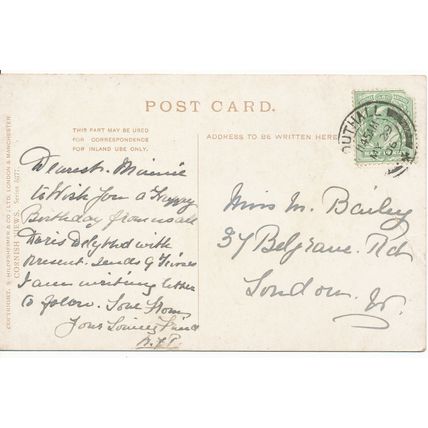 POST CARD.
THIS PART MAY BE USED
FOR CORRESPONDENCE
FOR INLAND USE ONLY.
ADDRESS TO BE WRITTEN HERE
Dearest Minnie
to Wish you a Happy
Birthday from us all
Doris Delyted with
Present. Sends 9 Kisses
I am writing letter
to follow. Love from
Your Loving
Miss M. Bailey
37 Belgrave Rd
London. W.
OUTHALL
COPYRIGHT. S. HILDESHEIMER & CO., LTD. LONDON & MANCHESTER
CORNISH VIEWS. Series 5277.